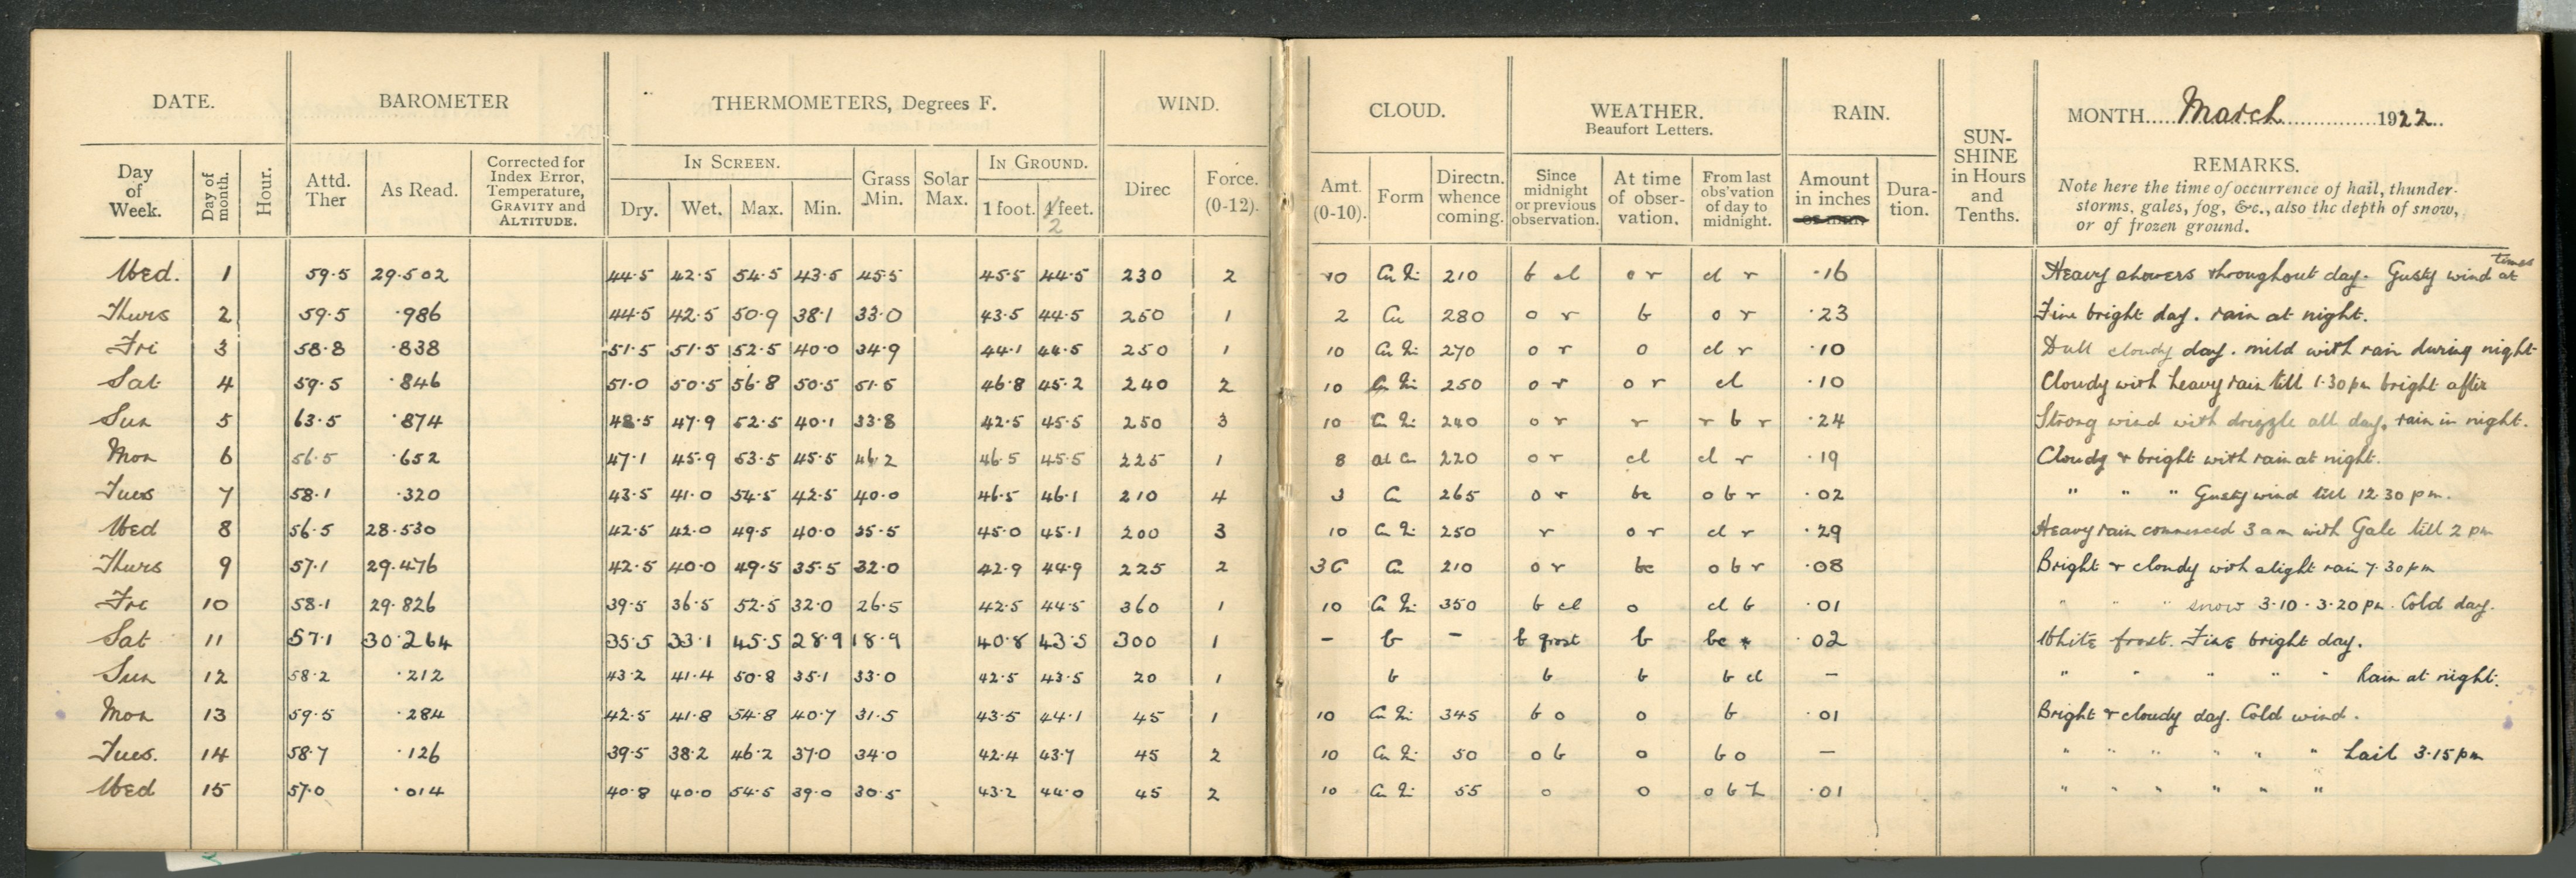 DATE. BAROMETER THERMOMETERS, Degrees F. WIND. CLOUD. WEATHER. RAIN. MONTH March 1922
Beaufort Letters.
Day of Week. Day of month. Hour. Attd. Ther As Read. Corrected for Index Error, Temperature, GRAVITY and ALTITUDE. IN SCREEN. Dry. Wet. Max. Min. Grass Min. Solar Max. IN GROUND. 1 foot. 2 feet. Direc Force. (0-12). Amt. (0-10). Form Directn. whence coming. Since midnight or previous observation. At time of obser-vation. From last obs'vation of day to midnight. Amount in inches Dura-tion. SUN-SHINE in Hours and Tenths. REMARKS.
Note here the time of occurrence of hail, thunder-
storms, gales, fog, &c., also the depth of snow,
or of frozen ground.
Wed. 1 59.5 29.502 44.5 42.5 54.5 43.5 45.5 45.5 44.5 230 2 10 Cu Ni 210 b cl o r cl r .16 Heavy showers throughout day. Gusty wind at times
Thurs 2 59.5 .986 44.5 42.5 50.9 38.1 33.0 43.5 44.5 250 1 2 Cu 280 o r b o r .23 Fine bright day. rain at night.
Fri 3 58.8 .838 51.5 51.5 52.5 40.0 34.9 44.1 44.5 250 1 10 Cu Ni 270 o r o cl r .10 Dull cloudy day. mild with rain during night
Sat 4 59.5 .846 51.0 50.5 56.8 50.5 51.5 46.8 45.2 240 2 10 Cu Ni 250 o r o r cl .10 Cloudy with heavy rain till 1.30 pm bright after
Sun 5 63.5 .874 48.5 47.9 52.5 40.1 33.8 42.5 45.5 250 3 10 Cu Ni 240 o r r r b r .24 Strong wind with drizzle all day, rain in night.
Mon 6 56.5 .652 47.1 45.9 53.5 45.5 46.2 46.5 45.5 225 1 8 al cu 220 o r cl cl r .19 Cloudy & bright with rain at night.
Tues 7 58.1 .320 43.5 41.0 54.5 42.5 40.0 46.5 46.1 210 4 3 Cu 265 o r bc o b r .02 " " " Gusty wind till 12.30 pm.
Wed 8 56.5 28.530 42.5 42.0 49.5 40.0 35.5 45.0 45.1 200 3 10 Cu Ni 250 r o r cl r .29 Heavy rain commenced 3 am with Gale till 2 pm
Thurs 9 57.1 29.476 42.5 40.0 49.5 35.5 32.0 42.9 44.9 225 2 3 Cu 210 o r bc o b r .08 Bright & cloudy with slight rain 7.30 pm
Fri 10 58.1 29.826 39.5 36.5 52.5 32.0 26.5 42.5 44.5 360 1 10 Cu Ni 350 b cl o cl b .01 " " " snow 3.10 - 3.20 pm. Cold day.
Sat 11 57.1 30.264 35.5 33.1 45.5 28.9 18.9 40.8 43.5 300 1 – b – b frost b bc .02 White frost. Fine bright day.
Sun 12 58.2 .212 43.2 41.4 50.8 35.1 33.0 42.5 43.5 20 1 b b b b cl – " " " " " Rain at night.
Mon 13 59.5 .284 42.5 41.8 54.8 40.7 31.5 43.5 44.1 45 1 10 Cu Ni 345 b o o b .01 Bright & cloudy day. Cold wind.
Tues. 14 58.7 .126 39.5 38.2 46.2 37.0 34.0 42.4 43.7 45 2 10 Cu Ni 50 o b o b o – " " " " " " hail 3.15 pm
Wed 15 57.0 .014 40.8 40.0 54.5 39.0 30.5 43.2 44.0 45 2 10 Cu Ni 55 o o o b h .01 " " " " " "